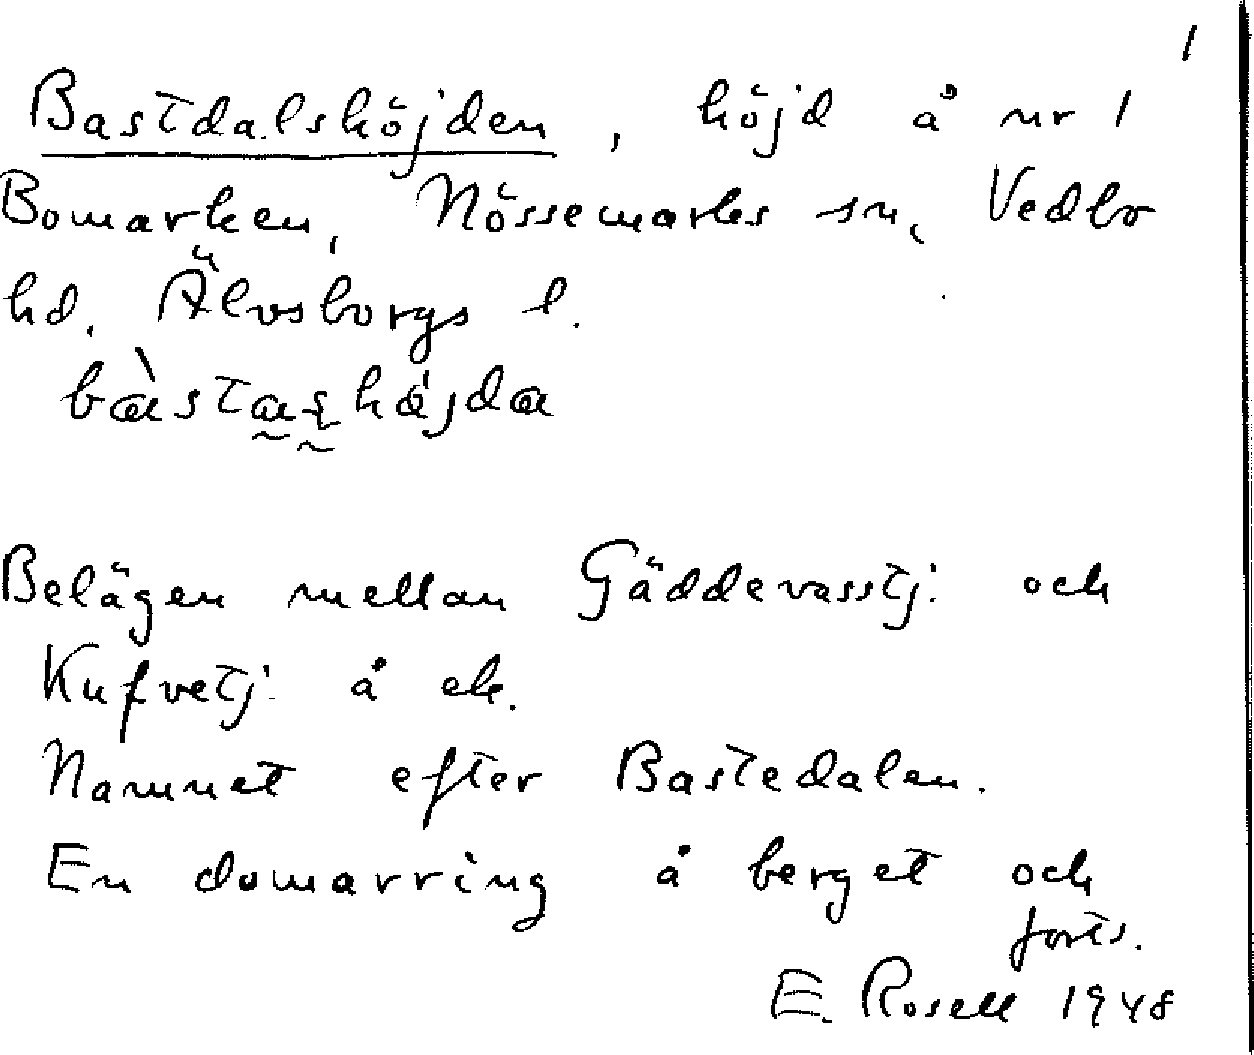 1
Bastdalshöjden, höjd å nr 1
Bomarken, Nössemarks sn, Vedbo
hd, Älvsborgs l.
Belägen mellan Gäddevasstj: och
Kufvetj: å ek.
Namnet efter Bastedalen.
En domarring å berget och
forts.
E. Rosell 1948